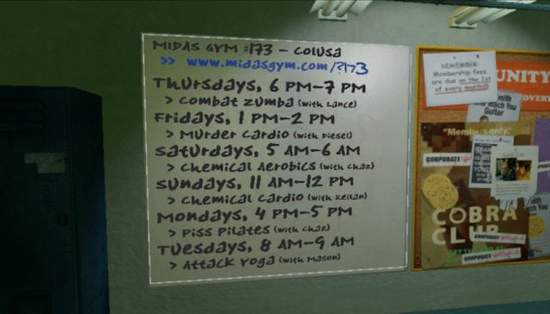 MIDAS GYM #173 – COLUSA
>> www.midasgym.com/R173
Thursdays, 6 PM–7 PM
> Combat Zumba (with Lance)
Fridays, 1 PM–2 PM
> Murder Cardio (with Diesel)
Saturdays, 5 AM–6 AM
> Chemical Aerobics (with Chaz)
Sundays, 11 AM–12 PM
> Chemical Cardio (with Keilan)
Mondays, 4 PM–5 PM
> Piss Pilates (with Chaz)
Tuesdays, 8 AM–9 AM
> Attack Yoga (with Mason)
REMEMBER
Membership fees
are due on the 1st
of every month!!
UNITY
"Members only."
CORPORATE
COBRA
CLUB
CORPORATE